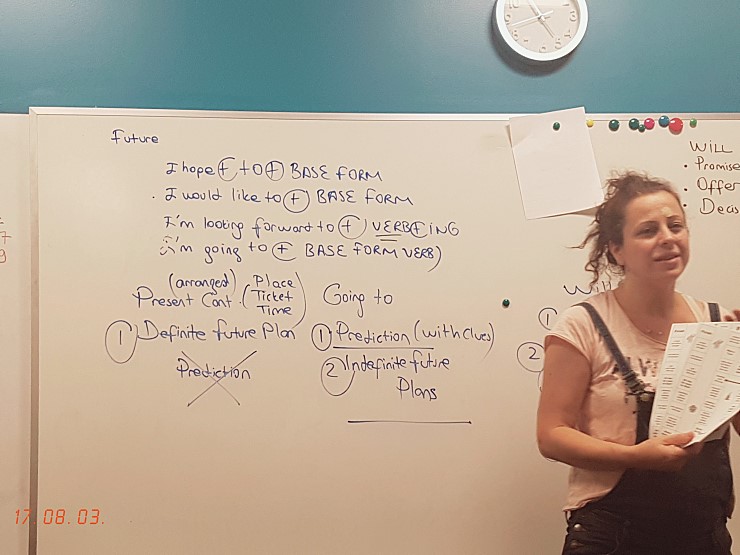 Future
I hope + to + BASE FORM
. I would like to + BASE FORM
I'm looking forward to + VERB+ING
I'm going to + BASE FORM VERB)
(arranged)
Present Cont. (Place
Ticket
Time)
Going to
1 Definite future Plan
Prediction
1 Prediction (with clues)
2 Indefinite future
Plans
Will
1
2
WILL
. Promise
. Offer
. Decis
7
9
17.08.03.